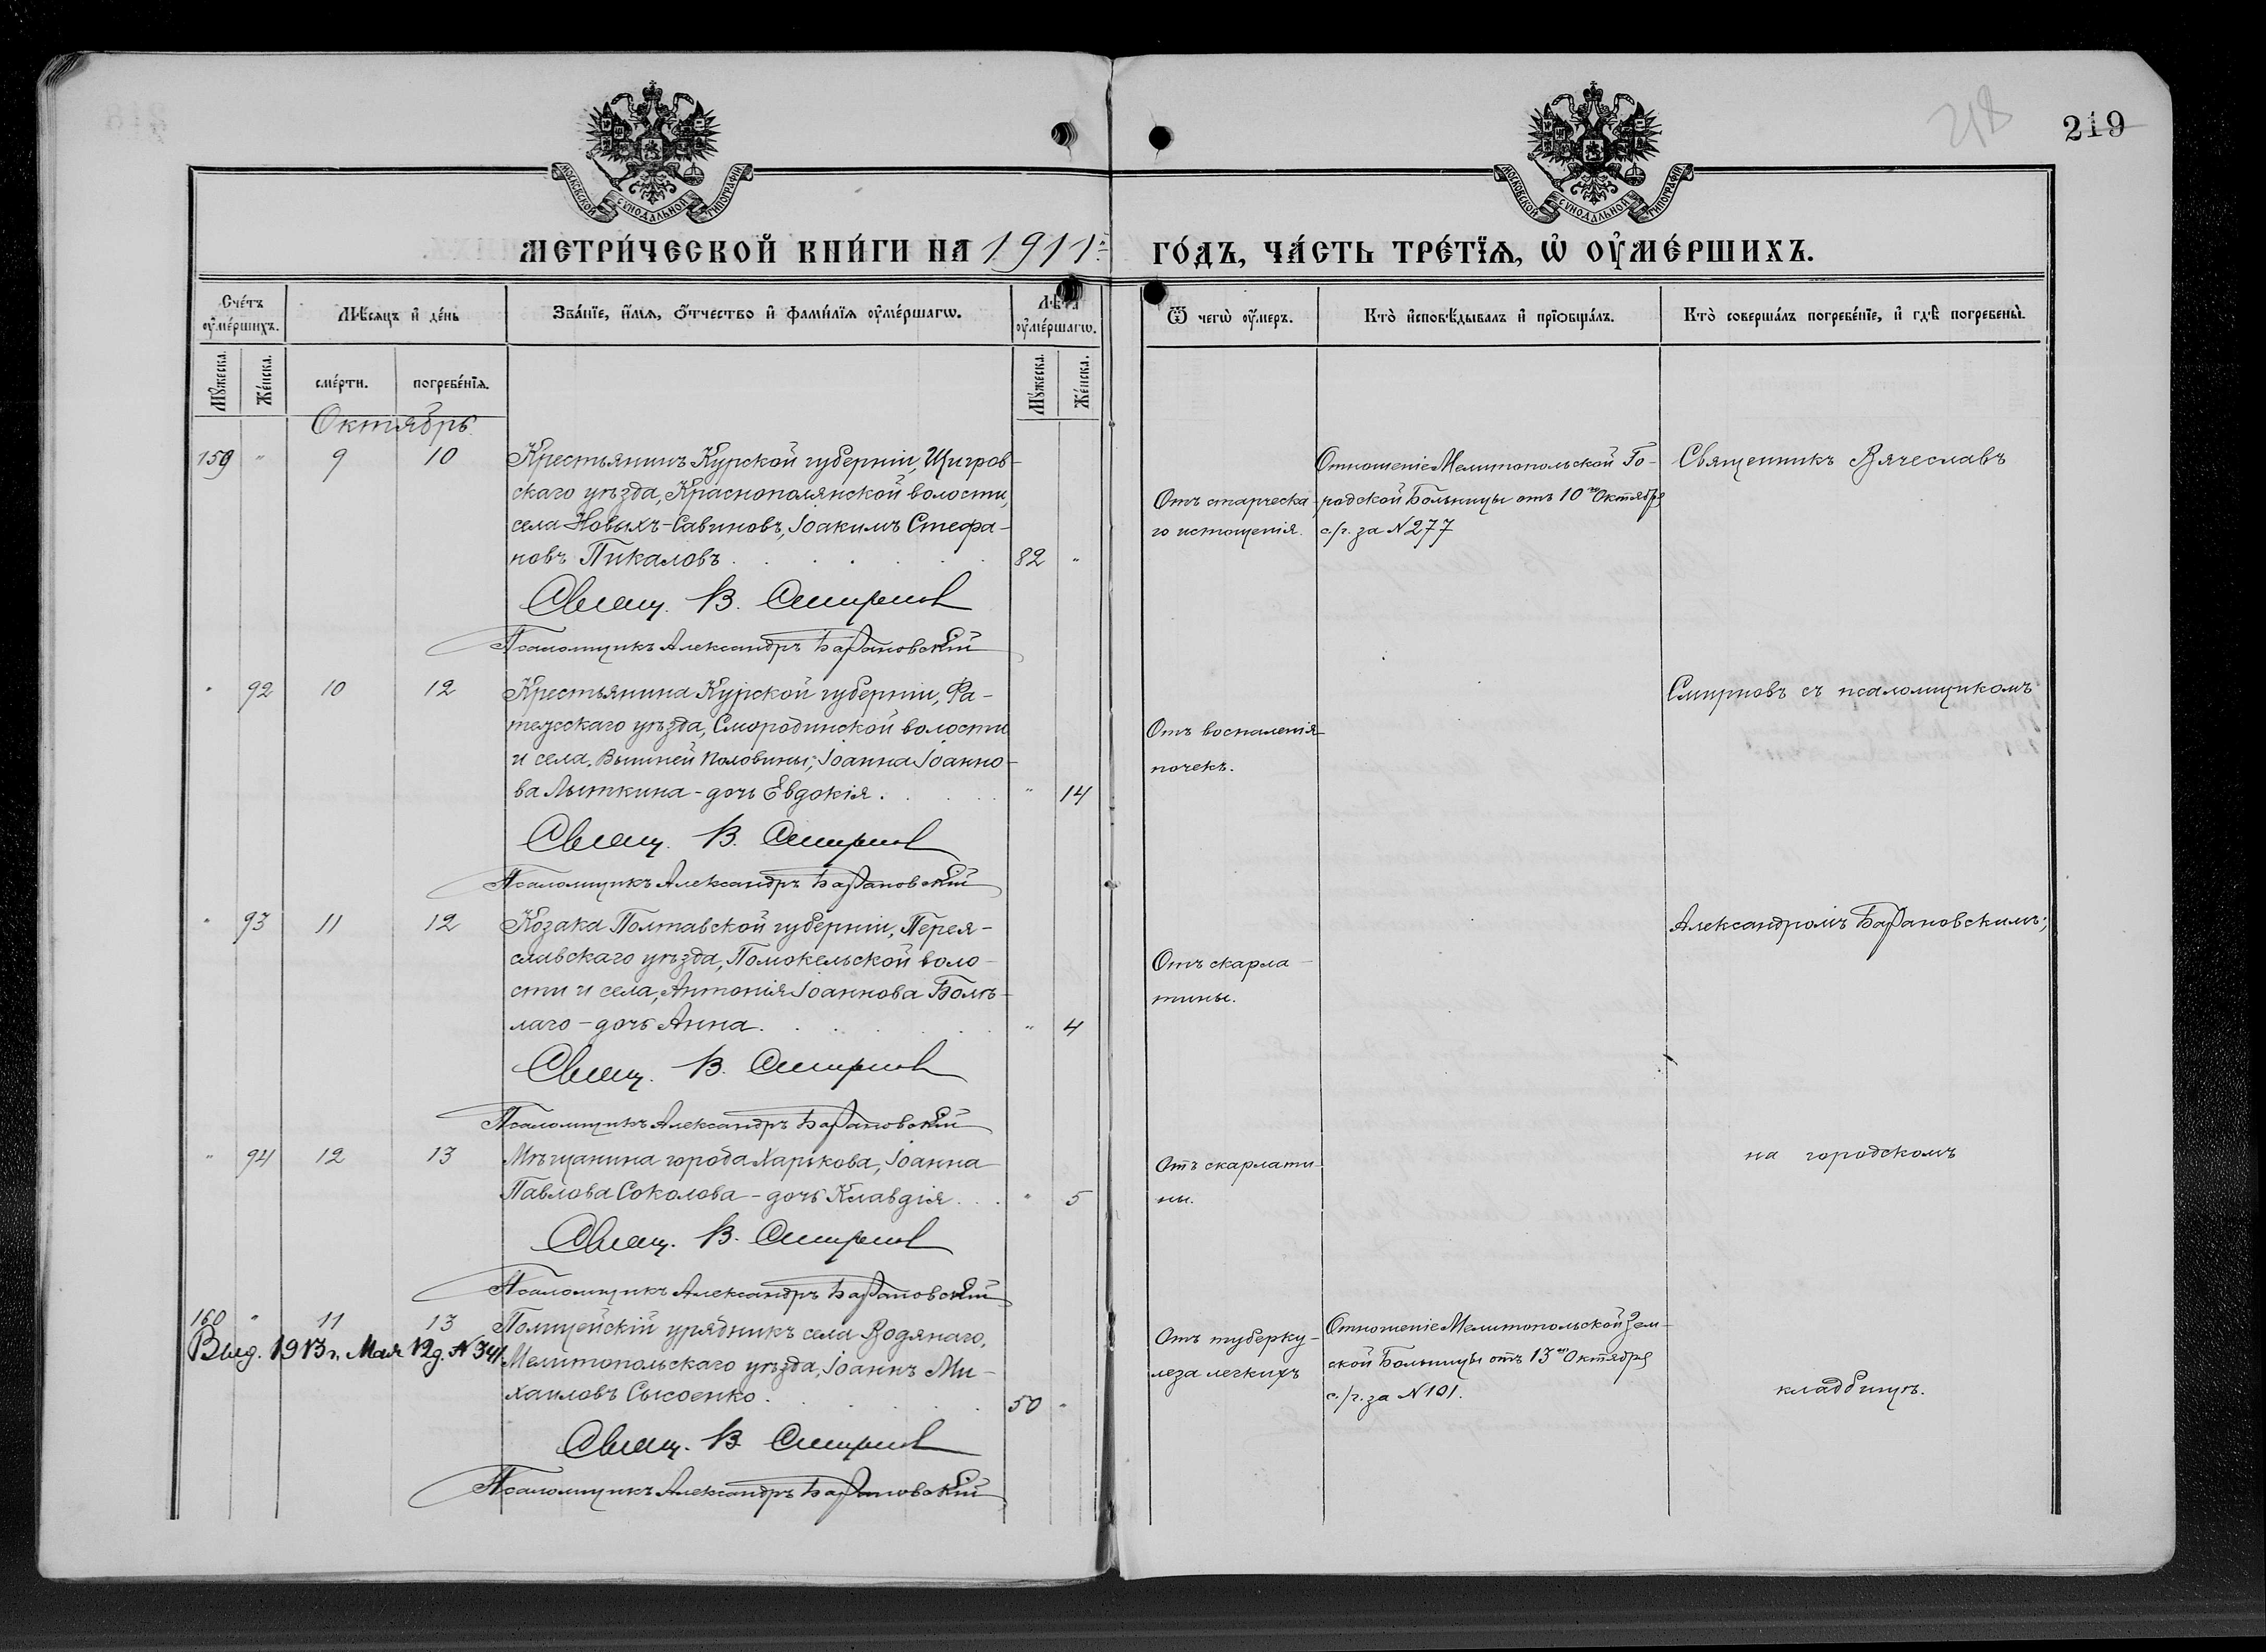 218
219
МОСКОВСКОЙ СѴНОДАЛЬНОЙ ТИПОГРАФІИ
МОСКОВСКОЙ СѴНОДАЛЬНОЙ ТИПОГРАФІИ
МЕТРИ́ЧЕСКОЙ КНИ́ГИ НА 1911 ГО́ДЪ, ЧА́СТЬ ТРЕ́ТЇѦ, Ѡ҆ ОУ҆МЕ́РШИХЪ.
Сче́тъ оу҆ме́ршихъ.
Мѣ́сяцъ и҆ де́нь
Зва́нїе, и҆́мѧ, ѻ҆́тчество и҆ фами́лїѧ оу҆ме́ршагѡ.
Лѣ́та оу҆ме́ршагѡ.
Ѿ чегѡ̀ оу҆́меръ.
Кто̀ и҆сповѣ́дывалъ и҆ прїѡбща́лъ.
Кто̀ соверша́лъ погребе́нїе, и҆ гдѣ̀ погребены̀.
Мꙋ́жеска. Же́нска. сме́рти. погребе́нїѧ. Мꙋ́жеска. Же́нска.
Октябрь
159 " 9 10 Крестьянинъ Курской губерніи, Щигров-
скаго уѣзда, Краснополянской волости,
села Новыхъ-Савиновъ, Іоакимъ Стефа-
новъ Пикаловъ. 82 "
Свящ. В. Смирновъ
Псаломщикъ Александръ Барановскій
Отъ старческа-
го истощенія.
Отношеніе Мелитопольской Го-
родской Больницы отъ 10го Октября
с/г. за № 277
Священникъ Вячеславъ
" 92 10 12 Крестьянина Курской губерніи, Фа-
тежскаго уѣзда, Смородинской волости
и села, Вышней половины; Іоанна Іоанно-
ва Лыткина - дочь Евдокія. " 14
Свящ. В. Смирновъ
Псаломщикъ Александръ Барановскій
Отъ воспаленія
почекъ.
Смирновъ съ псаломщикомъ
" 93 11 12 Козака Полтавской губерніи, Перея-
славскаго уѣзда, Помокельской воло-
сти и села, Антонія Іоаннова
лаго - дочь Анна. " 4
Свящ. В. Смирновъ
Псаломщикъ Александръ Барановскій
Отъ скарла-
тины.
Александромъ Барановскимъ;
" 94 12 13 Мѣщанина города Харькова, Іоанна
Павлова Соколова - дочь Клавдія. " 5
Свящ. В. Смирновъ
Псаломщикъ Александръ Барановскій
Отъ скарлати-
ны.
на городскомъ
160 " 11 13 Полицейскій урядникъ села Водянаго,
Выд. 1913 г. Мая 12 д. № 341
Мелитопольскаго уѣзда, Іоаннъ Ми-
хаиловъ Сысоенко. 50 "
Свящ. В. Смирновъ
Псаломщикъ Александръ Барановскій
Отъ туберку-
леза легкихъ
Отношеніе Мелитопольской Зем-
ской Больницы отъ 13го Октября
с./г. за № 101.
кладбищѣ.